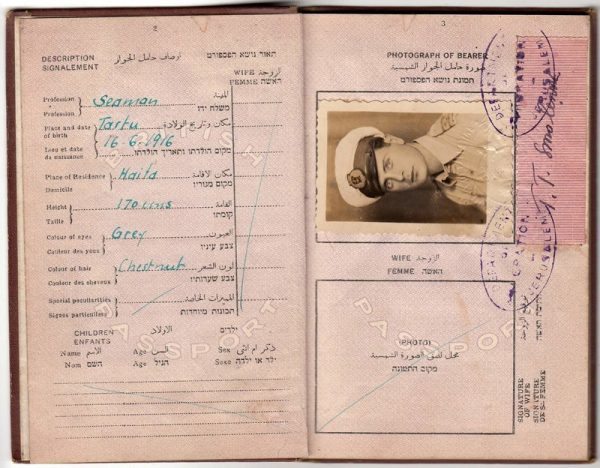 2
DESCRIPTION
SIGNALEMENT
اوصاف حامل الجواز
תאור נושא הפספורט
WIFE الزوجة
FEMME האשה
Profession
Profession
Seaman
المهنة
משלח ידו
Place and date
of birth
Lieu et date
de naissance
Tartu
16-6-1916
مكان وتاريخ الولادة
מקום הולדתו ותאריך הולדתו
Place of Residence
Domicile
Haifa
مكان الاقامة
מקום מגוריו
Height
Taille
170 cms
القامة
קומתו
Colour of eyes
Couleur des yeux
Grey
العيون
צבע עיניו
Colour of hair
Couleur des cheveux
Chestnut
لون الشعر
צבע שערותיו
Special peculiarities
Signes particuliers
المميزات الخاصة
תכונות מיוחדות
BRITISH
PASSPORT
CHILDREN
ENFANTS
الاولاد
ילדים
Name الاسم Age السن Sex ذكر ام انثى
Nom השם Age הגיל Sexe ילד או ילדה
3
PHOTOGRAPH OF BEARER
صورة حامل الجواز الشمسية
תמונת נושא הפספורט
WIFE الزوجة
FEMME האשה
(PHOTO)
محل لصق الصورة الشمسية
מקום התמונה
PASSPORT
DEPARTMENT OF
JERUSALEM
DEPARTMENT OF
JERUSALEM
SIGNATURE
OF WIFE
SIGNATURE
DE SA FEMME